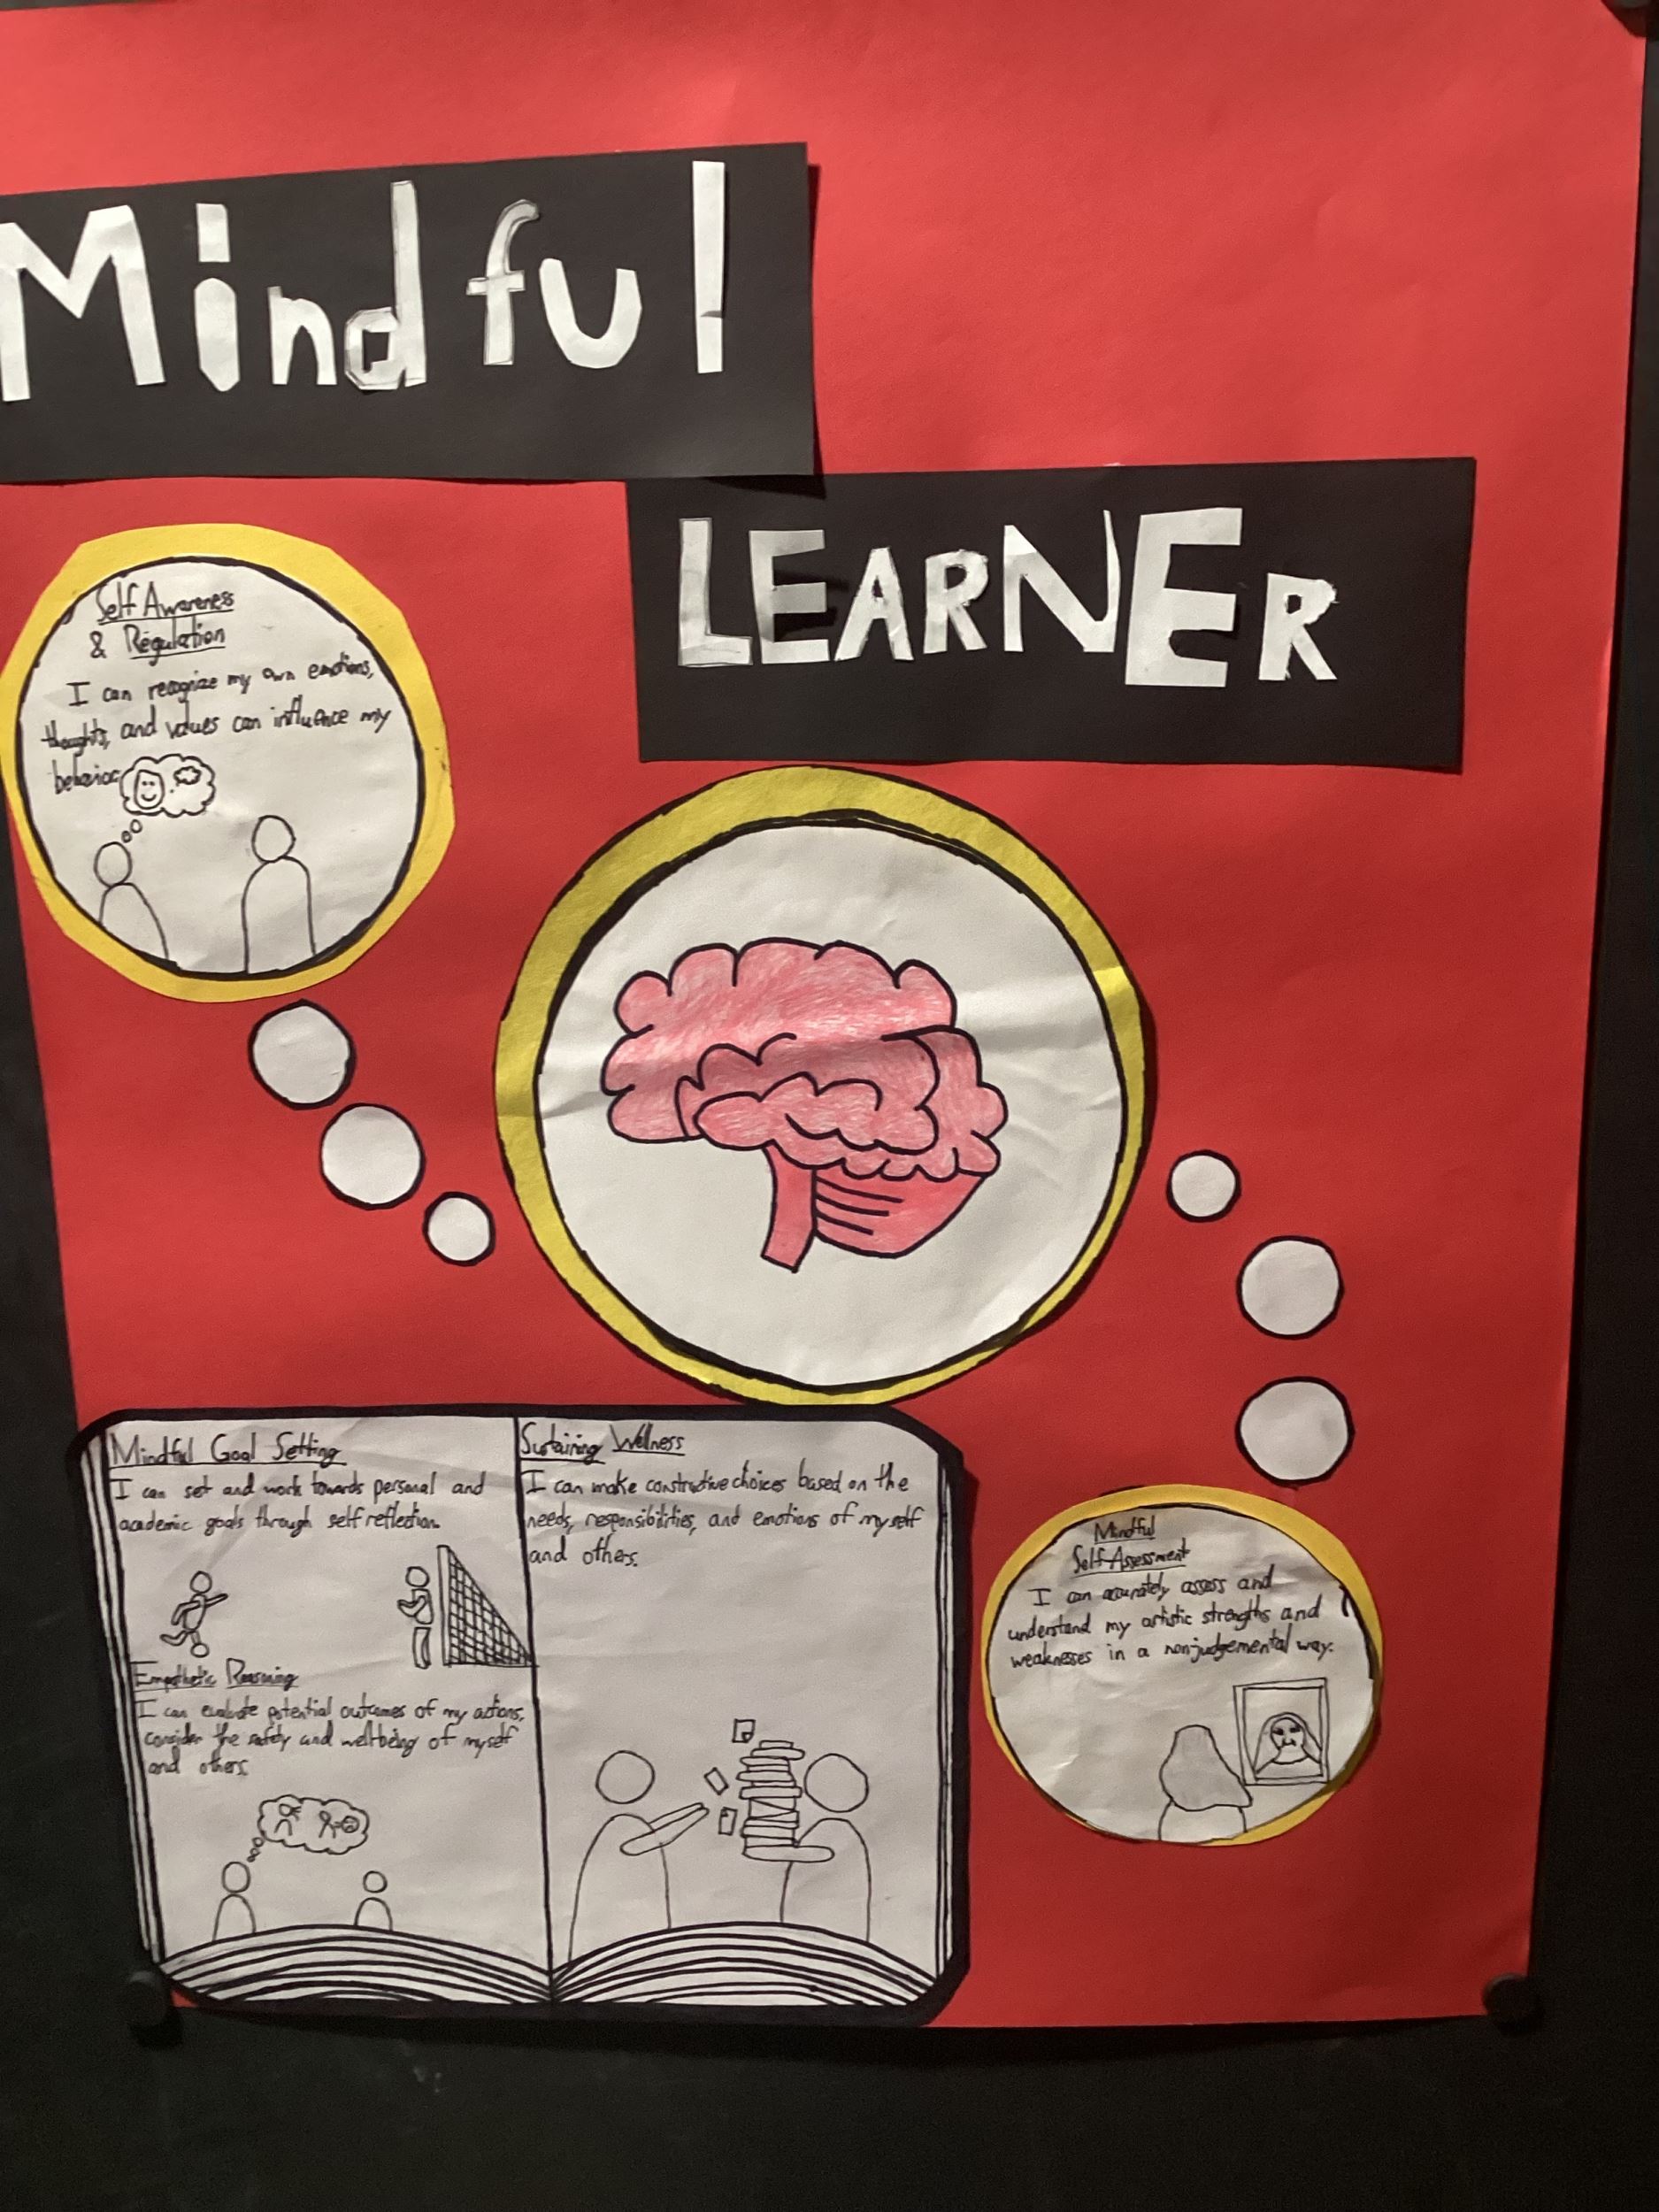 Mindful
LEARNER
Self Awareness
& Regulation
I can recognize my own emotions,
thoughts, and values can influence my
behavior
Mindful Goal Setting
I can set and work towards personal and
academic goals through self reflection.
Empathetic Reasoning
I can evaluate potential outcomes of my actions,
consider the safety and wellbeing of myself
and others.
Sustaining Wellness
I can make constructive choices based on the
needs, responsibilities, and emotions of myself
and others.
Mindful
Self-Assessment
I can accurately assess and
understand my artistic strengths and
weaknesses in a nonjudgemental way.